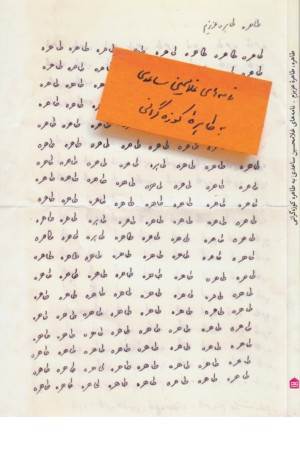 طاهره، طاهرهٔ عزیزم
طاهره طاهره طاهره طاهره طاهره طاهره طاهره طاهره
طاهره طاهره
طاهره طاهره
طاهره طاهره
طاهره طاهره
نامه‌های غلامحسین ساعدی
به طاهرهٔ کوزه‌گرانی
طاهره طاهره طاهره طاهره طاهره طاهره طاهره طاهره
طاهره طاهره طاهره طاهره طاهره طاهره طاهره طاهره
طاهره طاهره طاهره طاهره طاهره طاهره طاهره طاهره
طاهره طاهره طاهره طاهره طاهره طاهره طاهره طاهره
طاهره طاهره طاهره طاهره طاهره طاهره طاهره طاهره
طاهره طاهره طاهره طاهره طاهره طاهره طاهره طاهره
طاهره طاهره طاهره طاهره طاهره طاهره طاهره طاهره
طاهره طاهره طاهره طاهره طاهره طاهره طاهره طاهره
طاهره طاهره طاهره طاهره طاهره طاهره طاهره طاهره
طاهره طاهره طاهره طاهره طاهره طاهره طاهره طاهره
طاهره طاهره طاهره طاهره طاهره طاهره طاهره طاهره
طاهره طاهره طاهره طاهره طاهره طاهره طاهره طاهره
طاهره، طاهرهٔ عزیزم . نامه‌های غلامحسین ساعدی به طاهره کوزه‌گرانی